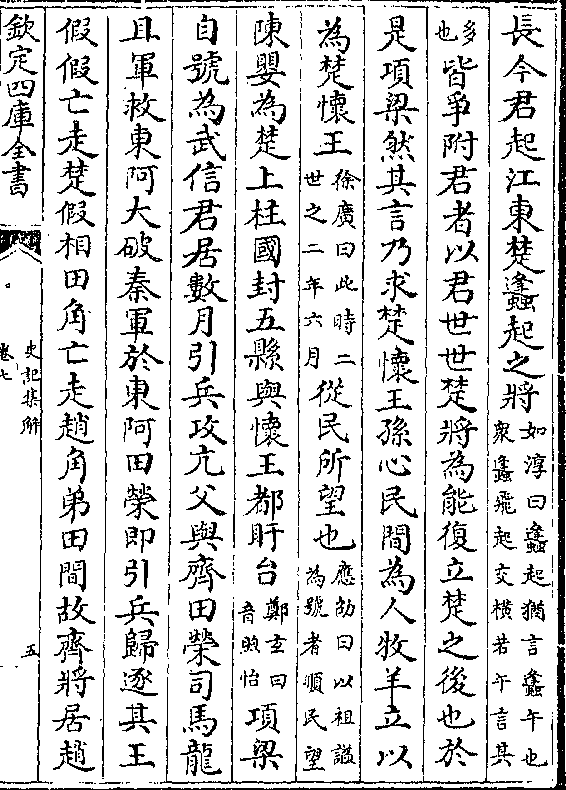 長今君起江東楚蠭起之將如淳曰蠭起猶言蠭午也衆蠭飛起交横若午言其
多也皆爭附君者以君世世楚將為能復立楚之後也於
是項梁然其言乃求楚懷王孫心民間為人牧羊立以
為楚懷王徐廣曰此時二世之二年六月從民所望也應劭曰以祖諡為號者順民望
陳嬰為楚上柱國封五縣與懷王都盱台鄭玄曰音煦怡項梁
自號為武信君居數月引兵攻亢父與齊田榮司馬龍
且軍救東阿大破秦軍於東阿田榮即引兵歸逐其王
假假亡走楚假相田角亡走趙角弟田間故齊將居趙
欽定四庫全書
史記集解
卷七
五